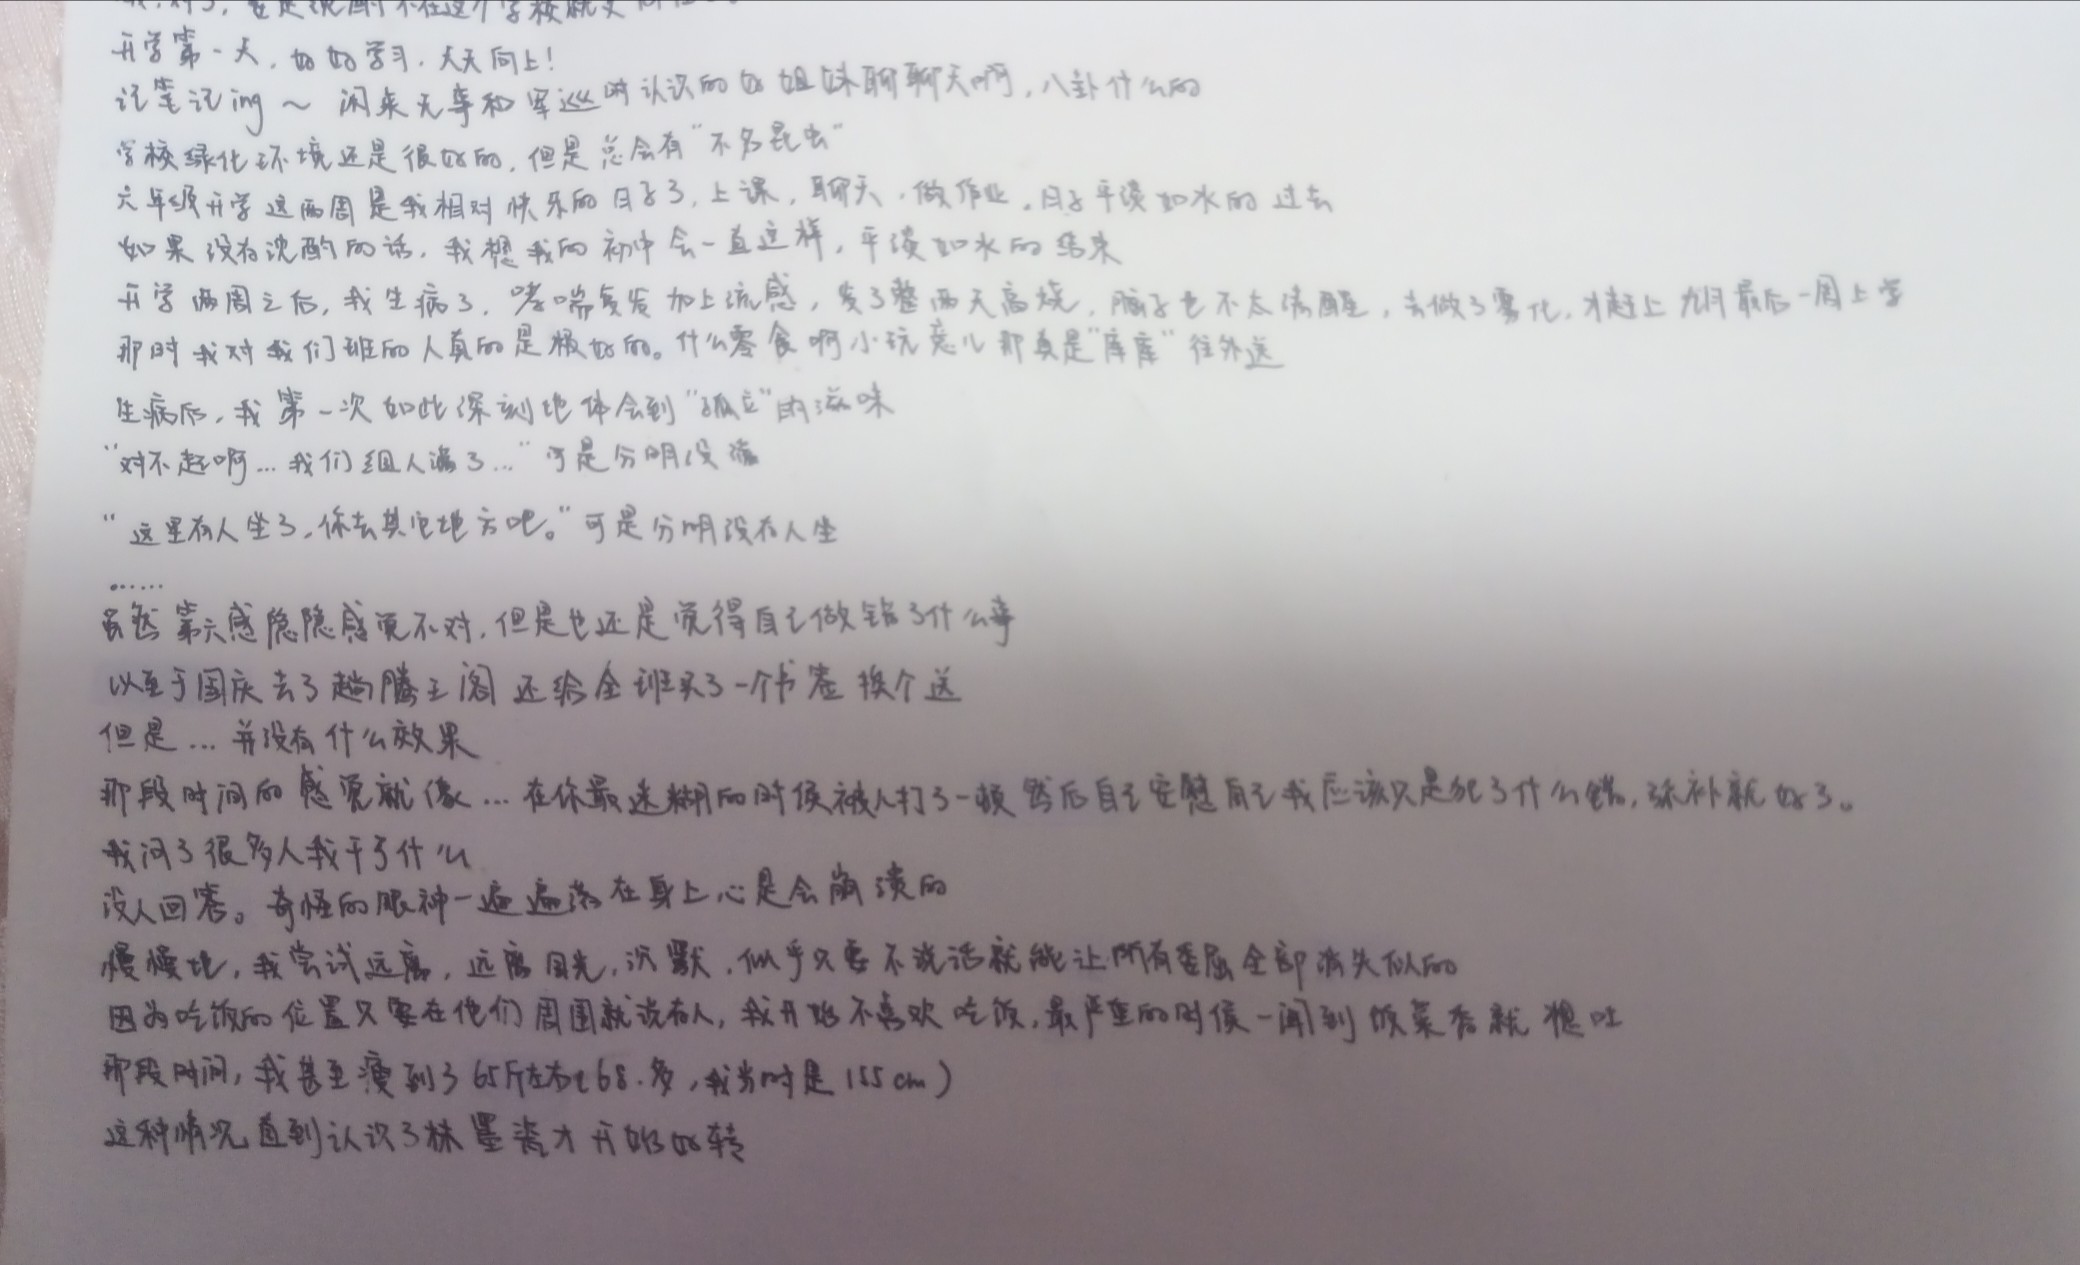 开学第一天，好好学习，天天向上！
记笔记ing～ 闲来无事和军巡时认识的好姐妹聊聊天啊，八卦什么的
学校绿化环境还是很好的，但是总会有“不名昆虫”
六年级开学这两周是我相对快乐的日子了，上课，聊天，做作业，日子平淡如水的过去
如果没有沈酌的话，我想我的初中会一直这样，平淡如水的结束
开学两周之后，我生病了，哮喘复发加上流感，发了整两天高烧，脑子也不太清醒，去做了雾化，才赶上九月最后一周上学
那时我对我们班的人真的是极好的。什么零食啊小玩意儿那真是“库库”往外送
生病后，我第一次如此深刻地体会到“孤立”的滋味
“对不起啊…我们组人满了…”可是分明没满
“这里有人坐了，你去其它地方吧。”可是分明没有人坐
……
虽然第六感隐隐感觉不对，但是也还是觉得自己做错了什么事
以至于国庆去了趟滕王阁还给全班买了一个书签挨个送
但是…并没有什么效果
那段时间的感觉就像…在你最迷糊的时候被人打了一顿然后自己安慰自己我应该只是犯了什么错，弥补就好了。
我问了很多人我干了什么
没人回答。奇怪的眼神一遍遍落在身上心是会崩溃的
慢慢地，我尝试远离，远离目光，沉默，似乎只要不说话就能让所有委屈全部消失似的
因为吃饭的位置只要在他们周围就说有人，我开始不喜欢吃饭，最严重的时候一闻到饭菜香就想吐
那段时间，我甚至瘦到了65斤左右（68.多，我当时是155cm）
这种情况直到认识了林墨瓷才开始好转